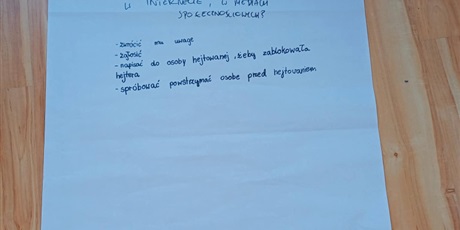 W INTERNECIE, W MEDIACH
SPOŁECZNOŚCIOWYCH?
- zwrócić mu uwagę
- zgłosić
- napisać do osoby hejtowanej, żeby zablokowała
hejtera
- spróbować powstrzymać osobę przed hejtowaniem